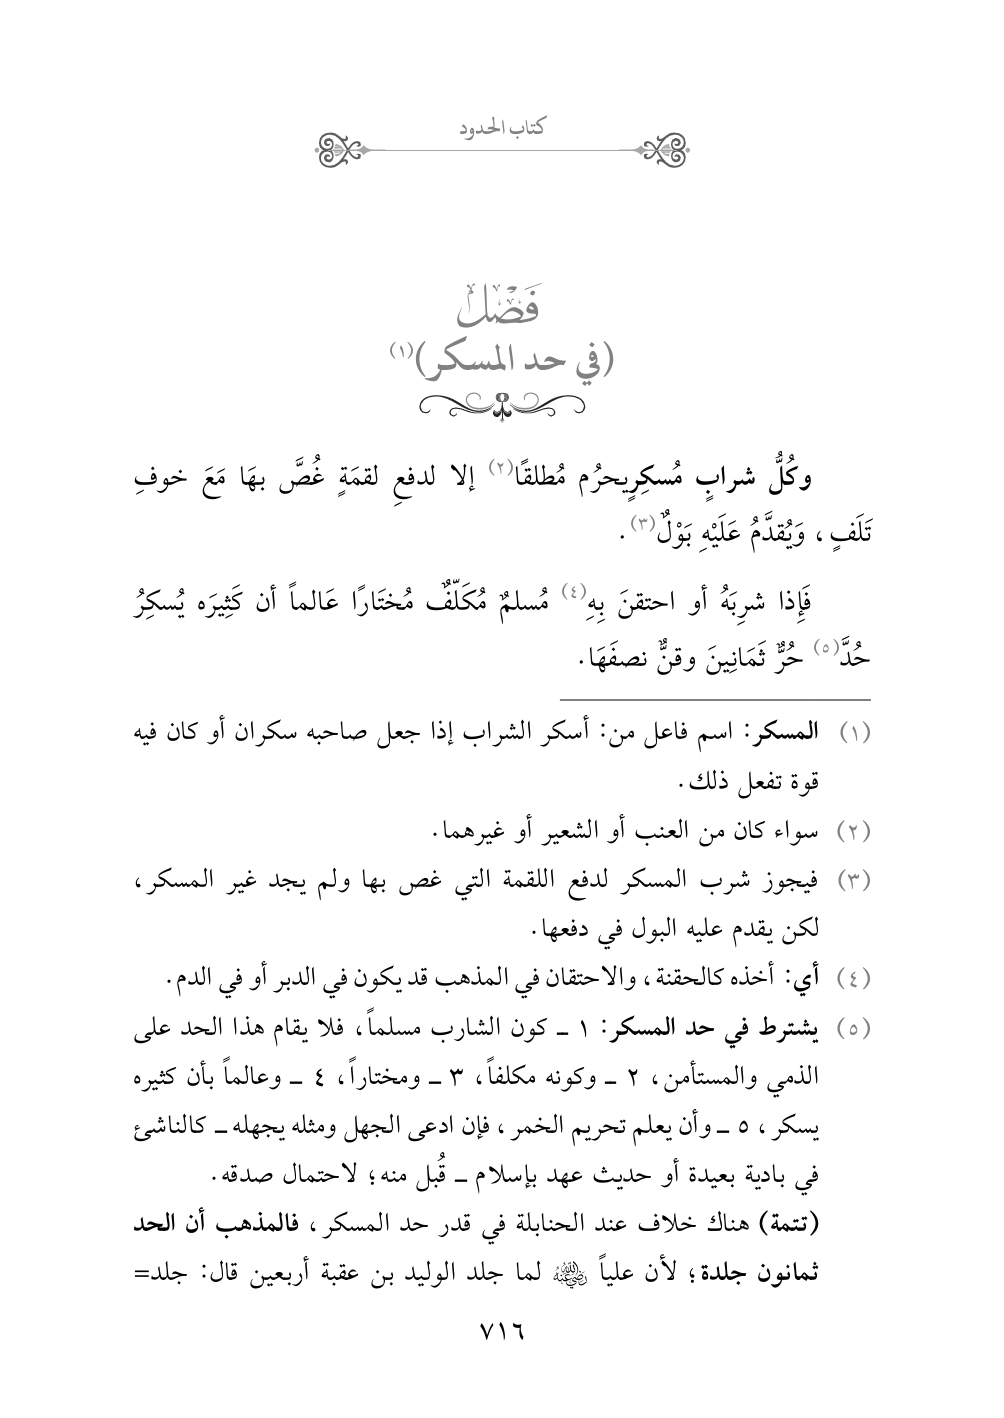 كتاب الحدود
فَصْلٌ
(في حد المسكر)(١)
وكُلُّ شرابٍ مُسكِرٍيحرُم مُطلقًا(٢) إلا لدفعِ لقمَةٍ غُصَّ بهَا مَعَ خوفِ
تَلَفٍ، وَيُقدَّمُ عَلَيْهِ بَوْلٌ(٣).
فَإِذا شرِبَهُ أو احتقنَ بِهِ(٤) مُسلمٌ مُكَلّفٌ مُختَارًا عَالماً أن كَثِيرَه يُسكِرُ
حُدَّ(٥) حُرٌّ ثَمَانِينَ وقنٌّ نصفَهَا.
(١) المسكر: اسم فاعل من: أسكر الشراب إذا جعل صاحبه سكران أو كان فيه
قوة تفعل ذلك.
(٢) سواء كان من العنب أو الشعير أو غيرهما.
(٣) فيجوز شرب المسكر لدفع اللقمة التي غص بها ولم يجد غير المسكر،
لكن يقدم عليه البول في دفعها.
(٤) أي: أخذه كالحقنة، والاحتقان في المذهب قد يكون في الدبر أو في الدم.
(٥) يشترط في حد المسكر: ١ ـ كون الشارب مسلماً، فلا يقام هذا الحد على
الذمي والمستأمن، ٢ ـ وكونه مكلفاً، ٣ ـ ومختاراً، ٤ ـ وعالماً بأن كثيره
يسكر، ٥ ـ وأن يعلم تحريم الخمر، فإن ادعى الجهل ومثله يجهله ـ كالناشئ
في بادية بعيدة أو حديث عهد بإسلام ـ قُبل منه؛ لاحتمال صدقه.
(تتمة) هناك خلاف عند الحنابلة في قدر حد المسكر، فالمذهب أن الحد
ثمانون جلدة؛ لأن علياً رضي الله عنه لما جلد الوليد بن عقبة أربعين قال: جلد=
٧١٦